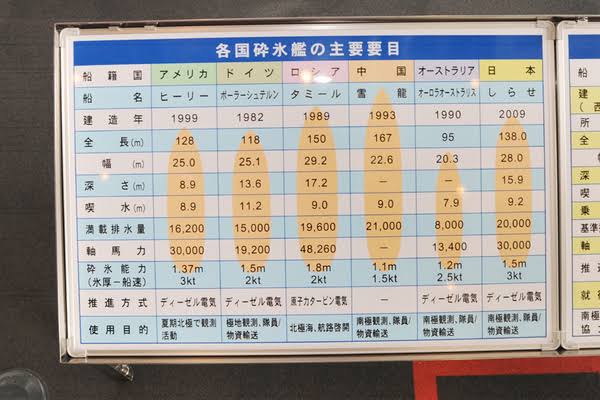 各国砕氷艦の主要要目
船籍国 アメリカ ドイツ ロシア 中国 オーストラリア 日本
船名 ヒーリー ポーラーシュテルン タミール 雪龍 オーロラオーストラリス しらせ
建造年 1999 1982 1989 1993 1990 2009
全長(m) 128 118 150 167 95 138.0
幅(m) 25.0 25.1 29.2 22.6 20.3 28.0
深さ(m) 8.9 13.6 17.2 − − 15.9
喫水(m) 8.9 11.2 9.0 9.0 7.9 9.2
満載排水量 16,200 15,000 19,600 21,000 8,000 20,000
軸馬力 30,000 19,200 48,260 − 13,400 30,000
砕氷能力 1.37m 1.5m 1.8m 1.1m 1.2m 1.5m
(氷厚−船速) 3kt 2kt 2kt 1.5kt 2.5kt 3kt
推進方式 ディーゼル電気 ディーゼル電気 原子力タービン電気 − ディーゼル電気 ディーゼル電気
使用目的 夏期北極で観測 極地観測、隊員/ 北極海、航路啓開 南極観測、隊員/ 南極観測、隊員/ 南極観測、隊員/
活動 物資輸送 物資輸送 物資輸送 物資輸送
船
船
建
(西
所
全
幅
深
喫
乗
基準
軸
推
就
南極
協